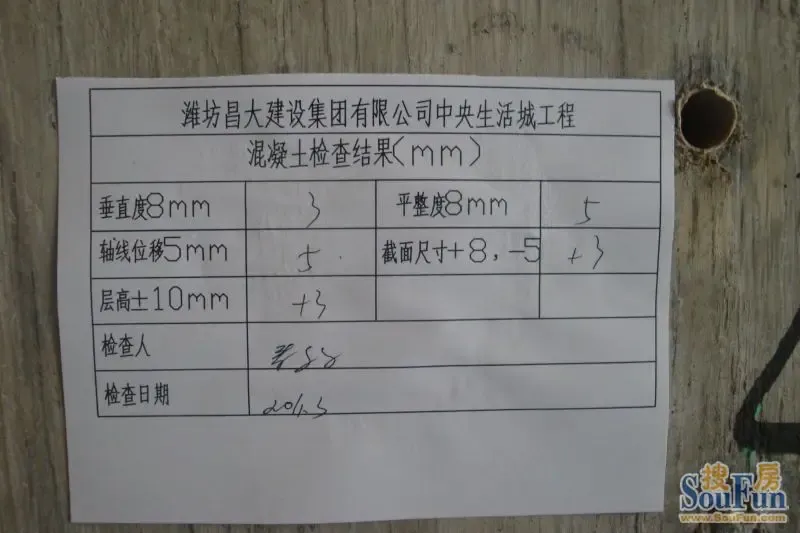 潍坊昌大建设集团有限公司中央生活城工程
混凝土检查结果(mm)
垂直度8mm 3 平整度8mm 5
轴线位移5mm 5 截面尺寸+8,-5 +3
层高±10mm +3
检查人
检查日期
搜房
SouFun
www.SouFun.com